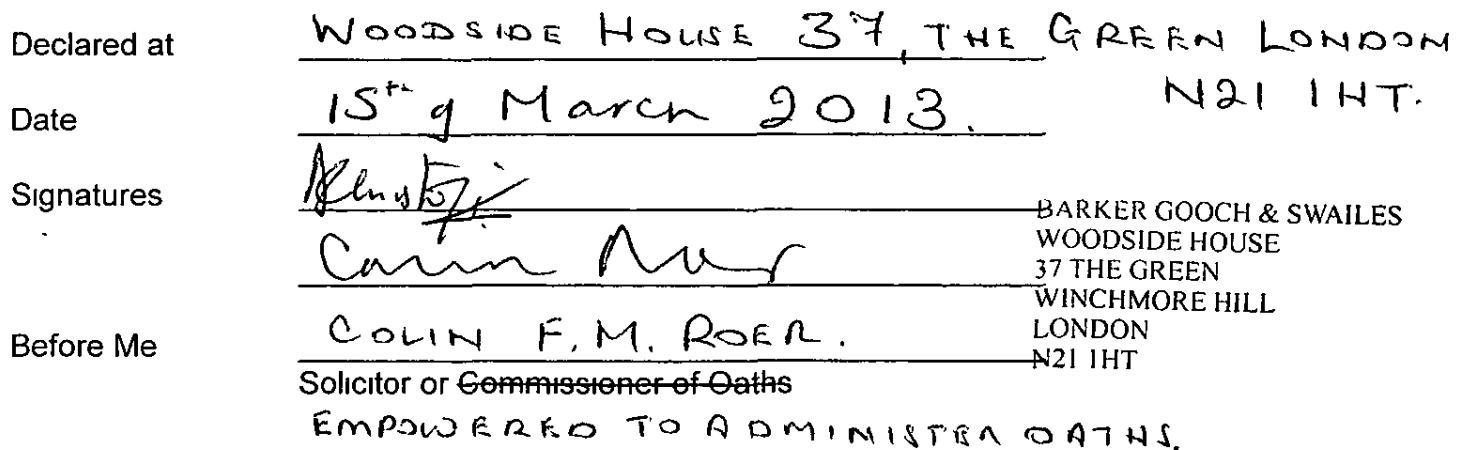 Declared at WOODSIDE HOUSE 37, THE GREEN LONDON
N21 1HT.
Date 15th of March 2013.
Signatures
BARKER GOOCH & SWAILES
WOODSIDE HOUSE
37 THE GREEN
WINCHMORE HILL
LONDON
N21 1HT
Before Me COLIN F.M. ROER.
Solicitor or Commissioner of Oaths
EMPOWERED TO ADMINISTER OATHS.